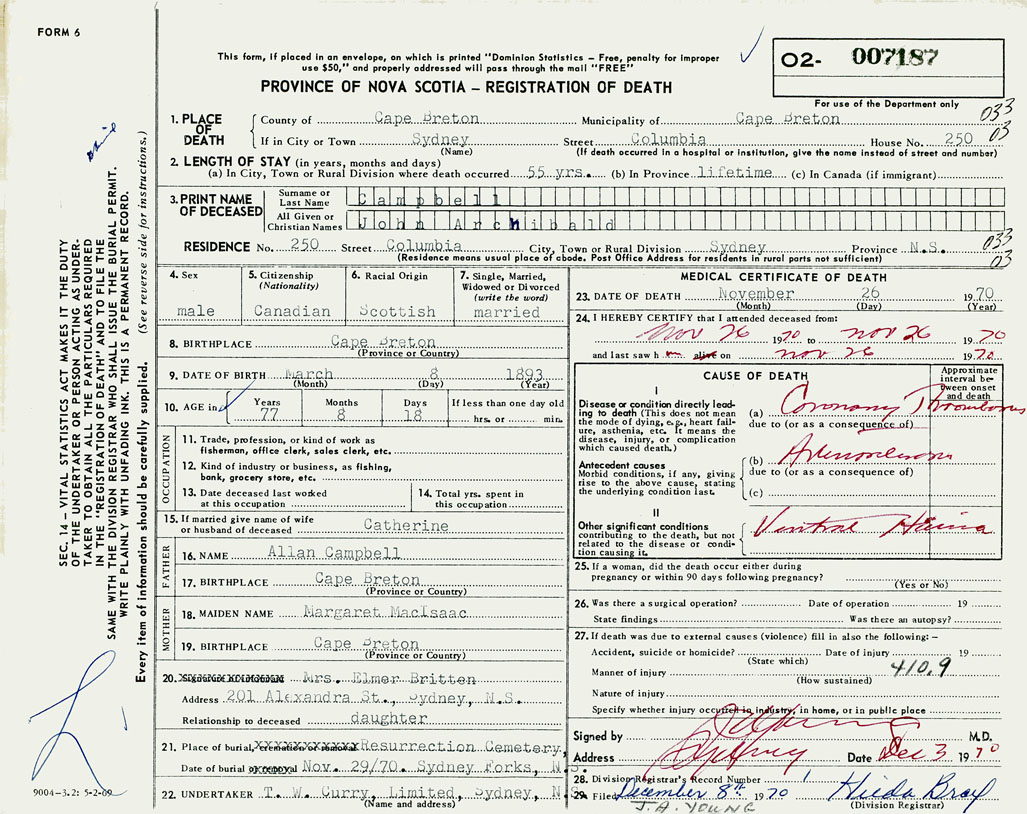 FORM 6
This form, if placed in an envelope, on which is printed "Dominion Statistics – Free, penalty for improper
use $50," and properly addressed will pass through the mail "FREE"
O2- 007187
For use of the Department only
PROVINCE OF NOVA SCOTIA – REGISTRATION OF DEATH
033
03
1. PLACE OF DEATH
County of Cape Breton Municipality of Cape Breton
If in City or Town Sydney Street Columbia House No. 250
(Name) (If death occurred in a hospital or institution, give the name instead of street and number)
2. LENGTH OF STAY (in years, months and days)
(a) In City, Town or Rural Division where death occurred 55 yrs. (b) In Province lifetime (c) In Canada (if immigrant)
3. PRINT NAME OF DECEASED
Surname or Last Name Campbell
All Given or Christian Names John Archibald
RESIDENCE No. 250 Street Columbia City, Town or Rural Division Sydney Province N.S.
(Residence means usual place of abode. Post Office Address for residents in rural parts not sufficient)
033
03
4. Sex
male
5. Citizenship
(Nationality)
Canadian
6. Racial Origin
Scottish
7. Single, Married,
Widowed or Divorced
(write the word)
married
8. BIRTHPLACE Cape Breton
(Province or Country)
9. DATE OF BIRTH March 8 1893
(Month) (Day) (Year)
10. AGE in
Years Months Days If less than one day old
77 8 18 hrs. or min.
OCCUPATION
11. Trade, profession, or kind of work as
fisherman, office clerk, sales clerk, etc.
12. Kind of industry or business, as fishing,
bank, grocery store, etc.
13. Date deceased last worked
at this occupation
14. Total yrs. spent in
this occupation
15. If married give name of wife
or husband of deceased Catherine
FATHER
16. NAME Allan Campbell
17. BIRTHPLACE Cape Breton
(Province or Country)
MOTHER
18. MAIDEN NAME Margaret MacIsaac
19. BIRTHPLACE Cape Breton
(Province or Country)
20. Signature of informant Mrs. Elmer Britten
Address 201 Alexandra St., Sydney, N.S.
Relationship to deceased daughter
21. Place of burial, cremation or removal Resurrection Cemetery,
Date of burial Nov. 29/70. Sydney Forks, N.S.
22. UNDERTAKER T. W. Curry, Limited, Sydney, N.S.
(Name and address)
MEDICAL CERTIFICATE OF DEATH
23. DATE OF DEATH November 26 1970
(Month) (Day) (Year)
24. I HEREBY CERTIFY that I attended deceased from:
Nov 26 1970 to Nov 26 1970
and last saw h m alive on Nov 26 1970
CAUSE OF DEATH
Approximate
interval be-
tween onset
and death
I
Disease or condition directly lead-
ing to death (This does not mean
the mode of dying, e.g., heart fail-
ure, asthenia, etc. It means the
disease, injury, or complication
which caused death.)
(a) Coronary Thrombosis
due to (or as a consequence of)
Antecedent causes
Morbid conditions, if any, giving
rise to the above cause, stating
the underlying condition last.
(b)
due to (or as a consequence of)
(c)
II
Other significant conditions
contributing to the death, but not
related to the disease or condi-
tion causing it.
Ventral Hernia
25. If a woman, did the death occur either during
pregnancy or within 90 days following pregnancy?
(Yes or No)
26. Was there a surgical operation? Date of operation 19
State findings Was there an autopsy?
27. If death was due to external causes (violence) fill in also the following: –
Accident, suicide or homicide? Date of injury 19
(State which)
Manner of injury 410.9
(How sustained)
Nature of injury
Specify whether injury occurred in industry, in home, or in public place
Signed by M.D.
Address Sydney Date Dec 3 1970
28. Division Registrar's Record Number
29. Filed December 8th 1970 Hilda Bray
J.A. YOUNG (Division Registrar)
SEC. 14 – VITAL STATISTICS ACT MAKES IT THE DUTY
OF THE UNDERTAKER OR PERSON ACTING AS UNDER-
TAKER TO OBTAIN ALL THE PARTICULARS REQUIRED
IN THE "REGISTRATION OF DEATH" AND TO FILE THE
SAME WITH THE DIVISION REGISTRAR WHO SHALL ISSUE THE BURIAL PERMIT.
WRITE PLAINLY WITH UNFADING INK. THIS IS A PERMANENT RECORD.
Every item of information should be carefully supplied. (See reverse side for instructions.)
9004-3.2: 5-2-69